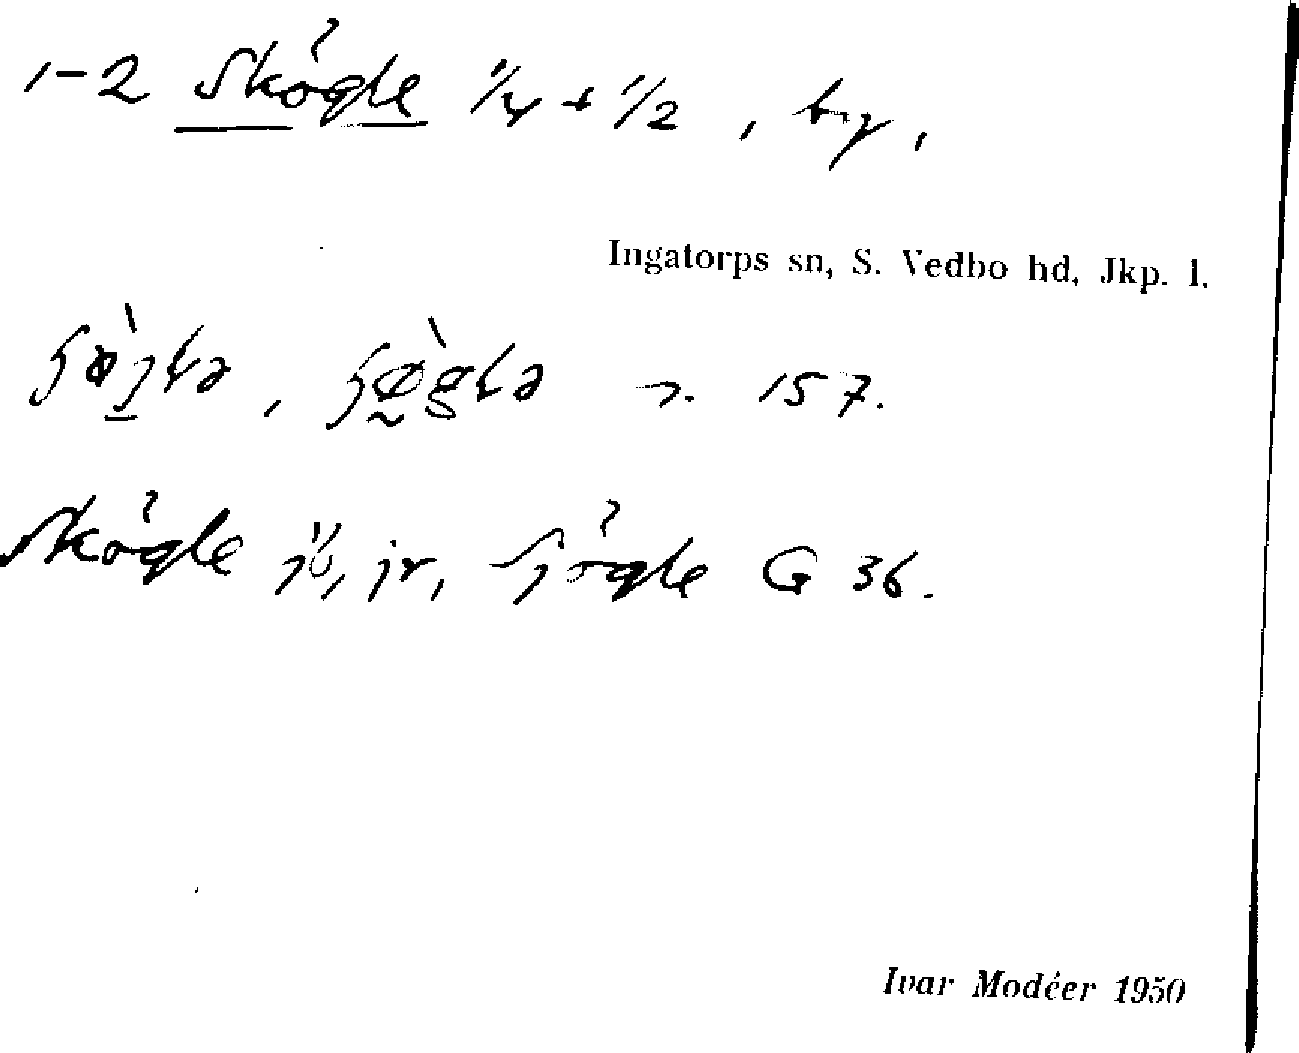 1-2 Skögle 1/4 + 1/2, by,
Ingatorps sn, S. Vedbo hd, Jkp. l.
157.
Skögle jb, jr, Sjögle G 36.
Ivar Modéer 1950